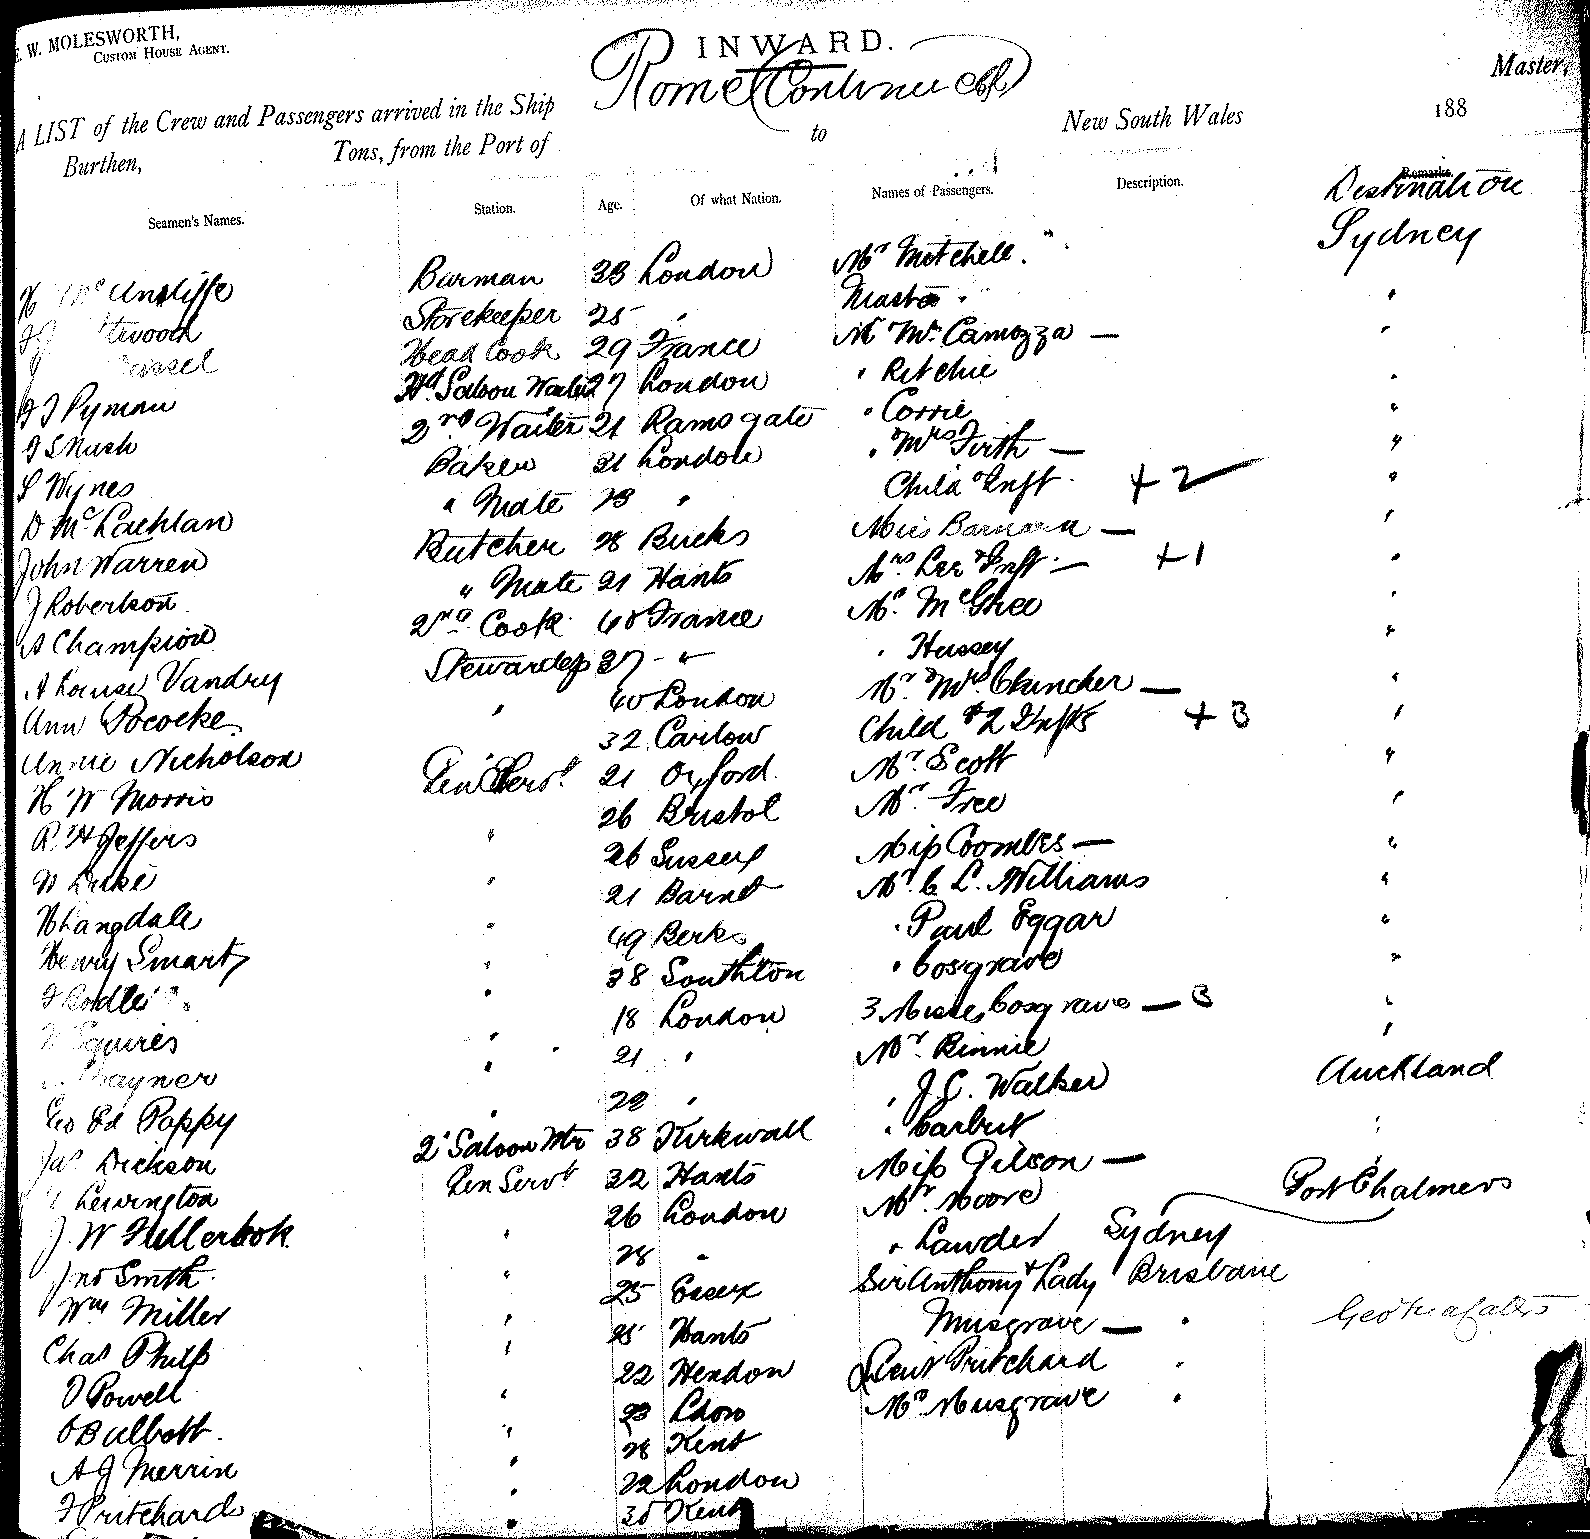 E. W. MOLESWORTH,
CUSTOM HOUSE AGENT.
INWARD.
Rome (Continued)
Master,
A LIST of the Crew and Passengers arrived in the Ship
Burthen, Tons, from the Port of to New South Wales 188
Seamen's Names. Station. Age. Of what Nation. Names of Passengers. Description. Remarks.
Destination
Barman 33 London Mr Mitchell. Sydney
Storekeeper 25 " Master "
Head Cook 29 France Mr Mrs Camozza —
Hd Saloon Waiter 27 London " Ritchie "
F J Pyman 2nd Waiter 21 Ramsgate " Corrie "
F S Nush Baker 21 London " Mrs Firth — "
S Wynes " Mate 23 " Child & Inft + 2 "
D McLachlan Butcher 28 Bucks Miss —
John Warren " Mate 21 Hants Mrs Lee & Inft — + 1 "
J Robertson 2nd Cook 40 France Mr McGhee "
A Champion Stewardess 37 " " Hussey "
A Louise Vandry " 40 London Mr & Mrs Cluncher — "
Ann Pococke 32 Carlow Child & 2 Infts + 3 "
Annie Nicholson Gen Serv. 21 Oxford Mr. Scott "
H W Morris 26 Bristol Mr Free "
R H Jeffers " 26 Sussex Miss Coombes — "
W Luke " 21 Barnet Mr. C L. Williams "
H Langdale " 49 Berks " Paul Eggar "
Henry Smart " 38 Southton " Cosgrave "
" 18 London 3 Misses Cosgrave — 3 "
Squires " 21 " Mr Binnie "
" 22 " " J. C. Walker Auckland
Geo Ed Pappy 2d Saloon Wtr 38 Kirkwall " Carbut "
Jas Dickson Gen Servt 32 Hants Miss Gilson — "
Lewington 26 London Mr Moore Port Chalmers
J. W Fullerbok " 28 " " Lawder Sydney
Jno Smith. " 25 Essex Sir Anthony & Lady Brisbane
Wm Miller " 25 Hants Musgrave — "
Chas Philp " 22 Hendon Lieut Pritchard "
J Powell " 23 Mr Musgrave "
O Balbott. " 28 Kent
A J Merrin " 22 London
F Pritchard " 35 Kent